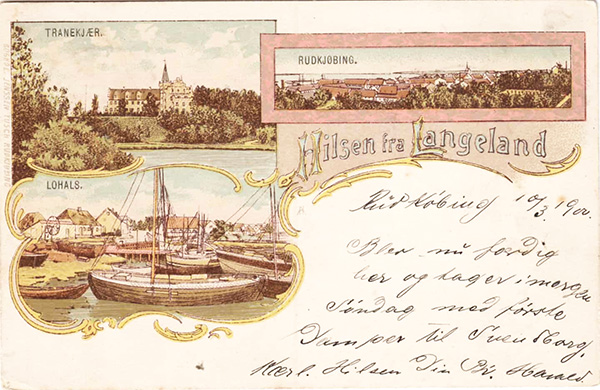 TRANEKJÆR.
RUDKJØBING.
Hilsen fra Langeland
LOHALS.
Rudkøbing 10/3 1900.
Blev nu færdig
her og tager i morgen
Søndag med første
Damper til Svendborg.
Kærl. Hilsen Din Br. Harald.